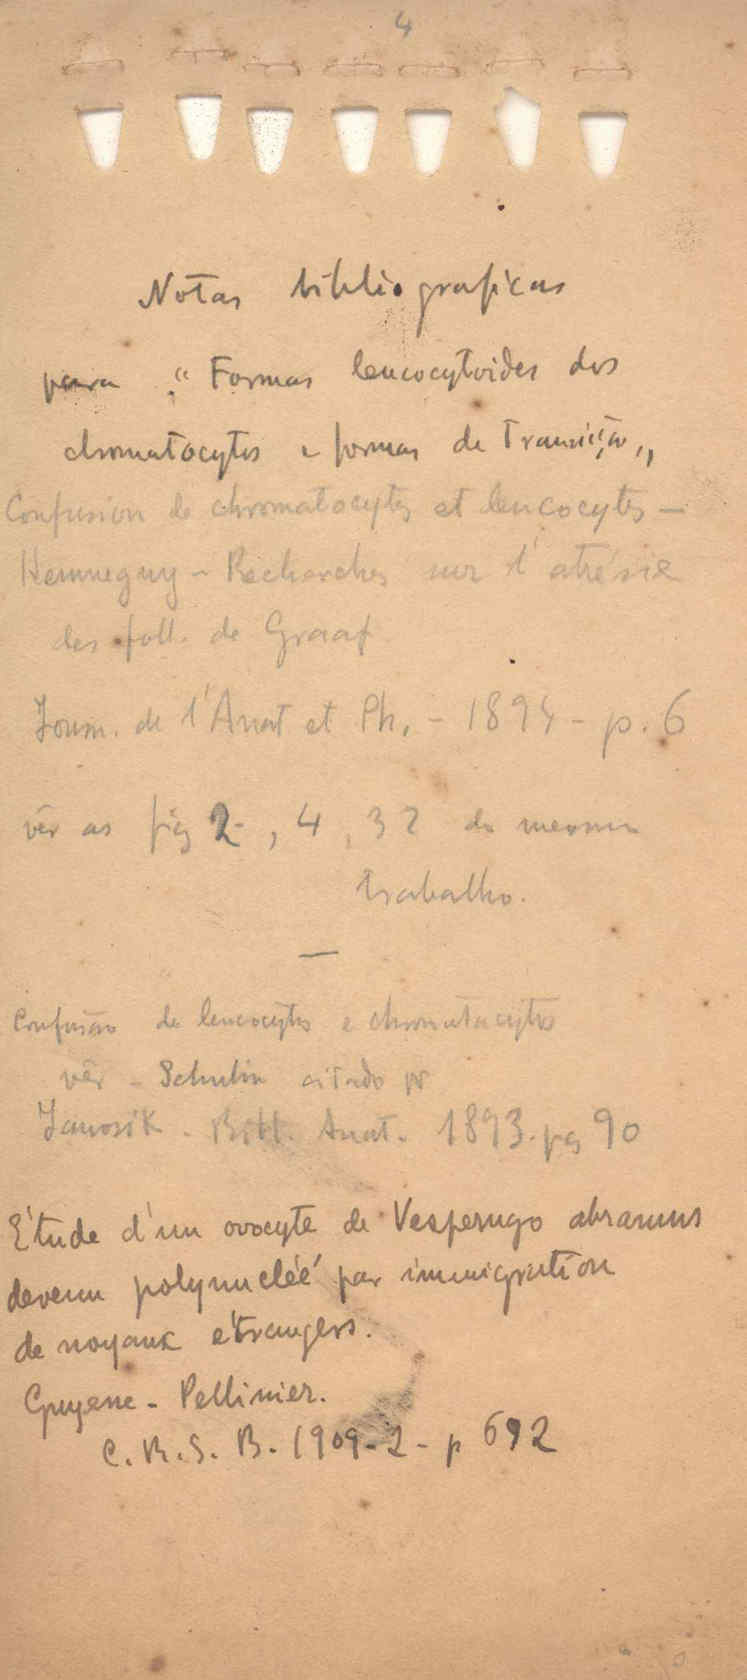 4
Notas bibliograficas
para "Formas leucocytoides dos
chromatocytos e formas de Transição„
Confusion de chromatocytes et leucocytes —
Henneguy - Recherches sur l'atrésie
des foll. de Graaf
Journ. de l'Anat et Ph. - 1894 - p. 6
vêr as fig 2 , 4 , 32 do mesmo
trabalho.
—
Confusão de leucocytos e chromatocytos
vêr - Schulin citado pr
Janosik - Bibl. Anat. 1893. pg 90
Étude d'un ovocyte de Vesperugo abramus
devenu polynucléé par immigration
de noyaux étrangers.
Pellinier.
C. R. S. B. 1909 - 2 - p 692